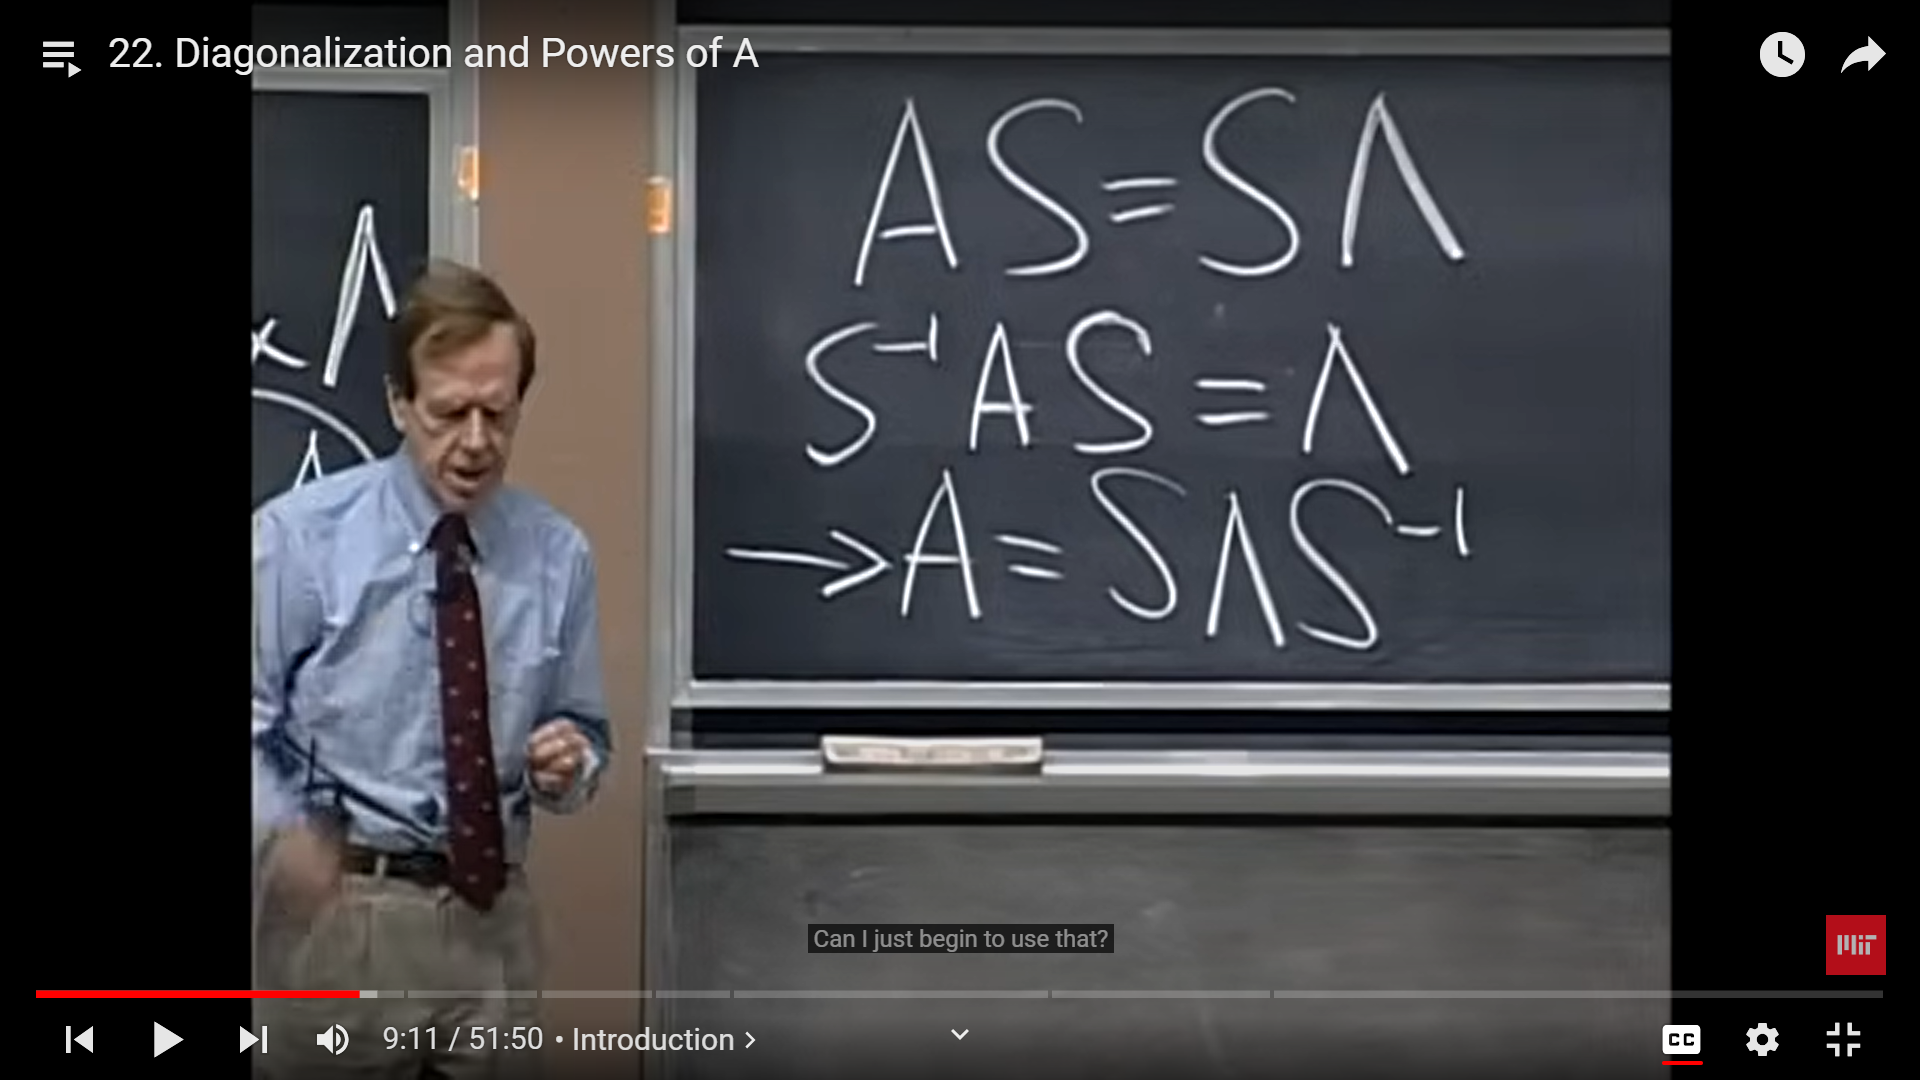 22. Diagonalization and Powers of A
Λ
AS=SΛ
S⁻¹AS=Λ
→A=SΛS⁻¹
Can I just begin to use that?
MIT
9:11 / 51:50 • Introduction >
CC